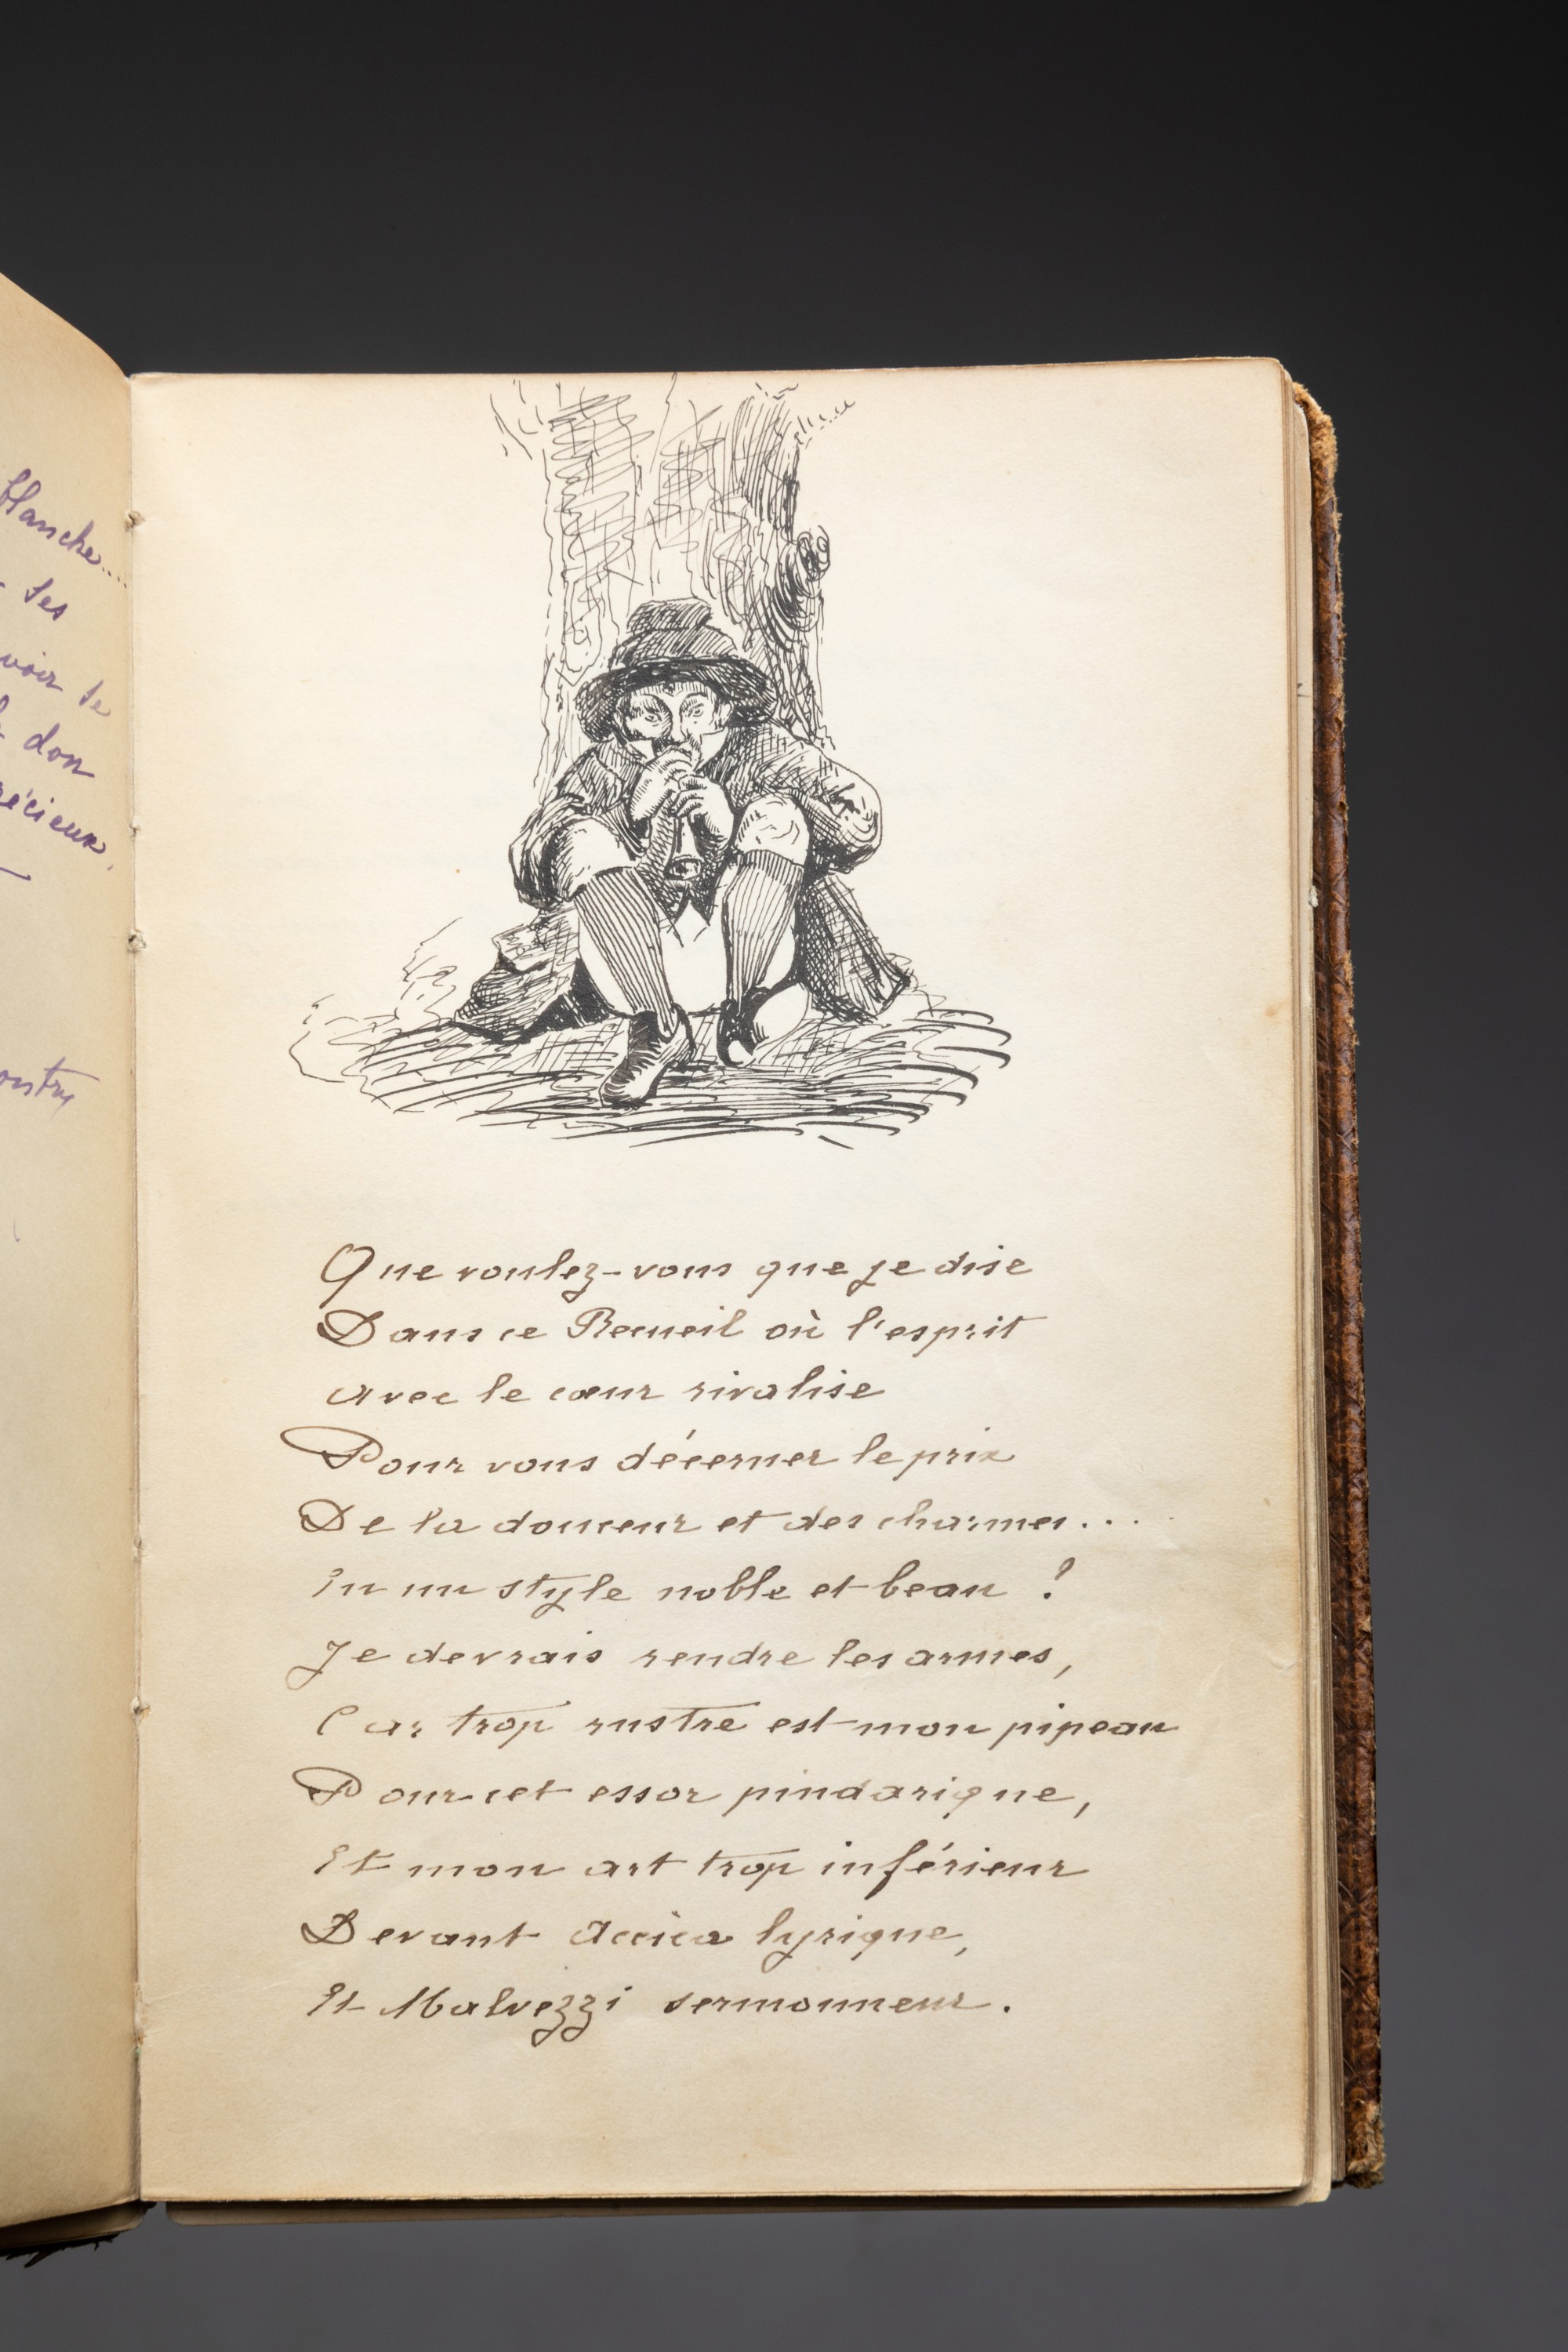 blanche....
ses
voir se
don
précieux,
Que voulez-vous que je dise
Dans ce Recueil où l'esprit
avec le cœur rivalise
Pour vous décerner le prix
De la douceur et des charmes....
En un style noble et beau ?
Je devrais rendre les armes,
Car trop rustre est mon pipeau
Pour cet essor pindarique,
Et mon art trop inférieur
Devant lyrique,
Et Malvezzi sermonneur.